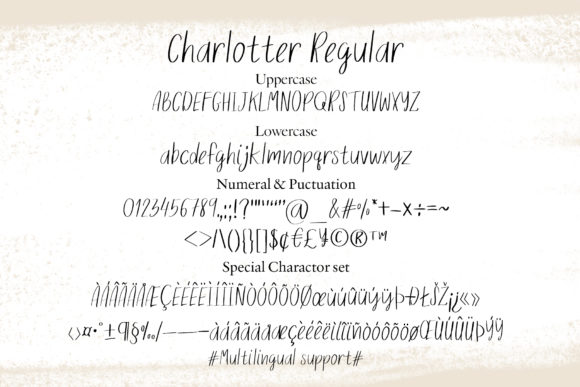 Charlotter Regular
Uppercase
ABCDEFGHIJKLMNOPQRSTUVWXYZ
Lowercase
abcdefghijklmnopqrstuvwxyz
Numeral & Puctuation
0123456789.,:;!?""''“”@_&#%*+–×÷=~
<>/\(){}[]$¢€£¥©®™
Special Charactor set
ÀÁÂÃÄÅÆÇÈÉÊËÌÍÎÏÑÒÓÔÕÖØœùúûüýÿÞÐŁŠŽı¡¿«»
‹›¤•°±¶§‰/———-àáâãäåæçèéêëìíîïñòóôõöøŒÙÚÛÜÞÝŸ
#Multilingual support#